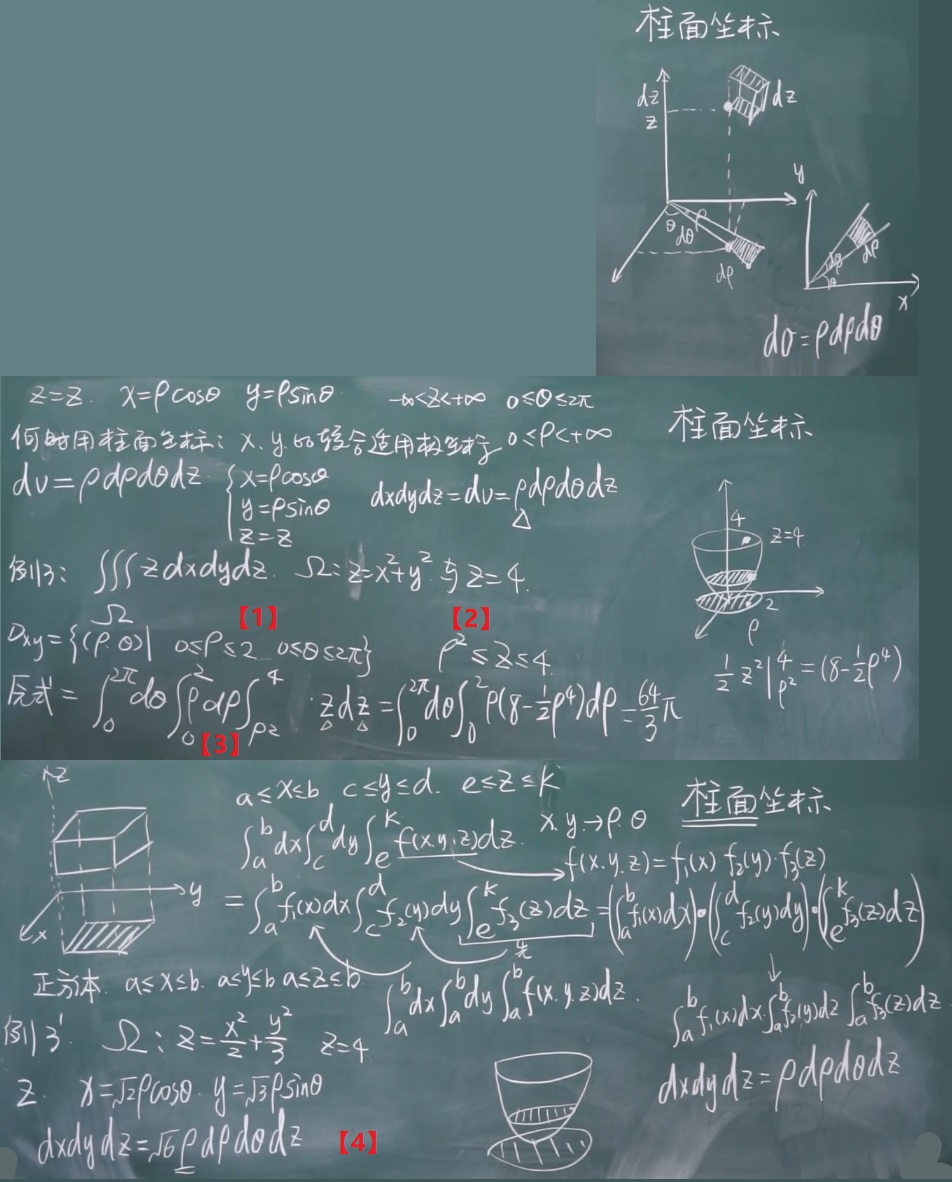 柱面坐标
dz
z
dz
θ dθ ρ
dρ
y
dθ dρ
θ
x
dσ=ρdρdθ
z=z. x=ρcosθ y=ρsinθ -∞<z<+∞ 0≤θ≤2π
何时用柱面坐标: x.y.的结合适用极坐标 0≤ρ<+∞
柱面坐标
dv=ρdρdθdz {x=ρcosθ
y=ρsinθ
z=z
dxdydz=dv=ρdρdθdz
△
4
z=4
2
ρ
例3: ∭zdxdydz. Ω: z=x²+y² 与 z=4.
Ω 【1】 【2】
Dxy={(ρ.θ)| 0≤ρ≤2 0≤θ≤2π} ρ²≤z≤4.
½z²|⁴ρ²=(8-½ρ⁴)
原式=∫₀^{2π}dθ∫₀²ρdρ∫_{ρ²}^4·zdz=∫₀^{2π}dθ∫₀²ρ(8-½ρ⁴)dρ=64/3π
【3】
z
y
x
a≤x≤b c≤y≤d. e≤z≤k
柱面坐标
∫ₐᵇdx∫_c^d dy∫_e^k f(x.y.z)dz. x.y→ρ.θ
f(x.y.z)=f₁(x)·f₂(y)·f₃(z)
=∫ₐᵇf₁(x)dx∫_c^d f₂(y)dy∫_e^k f₃(z)dz=(∫ₐᵇf₁(x)dx)·(∫_c^d f₂(y)dy)·(∫_e^k f₃(z)dz)
先
正方体. a≤x≤b. a≤y≤b a≤z≤b
∫ₐᵇdx∫ₐᵇdy∫ₐᵇf(x.y.z)dz.
∫ₐᵇf₁(x)dx·∫ₐᵇf₂(y)dz∫ₐᵇf₃(z)dz
例3' Ω: z=x²/2+y²/3 z=4
z. x=√2ρcosθ. y=√3ρsinθ
dxdydz=ρdρdθdz
dxdydz=√6ρdρdθdz 【4】